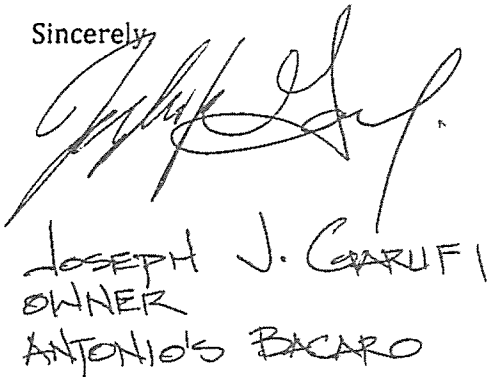 Sincerely
JOSEPH J. GARUFI
OWNER
ANTONIO'S BACARO